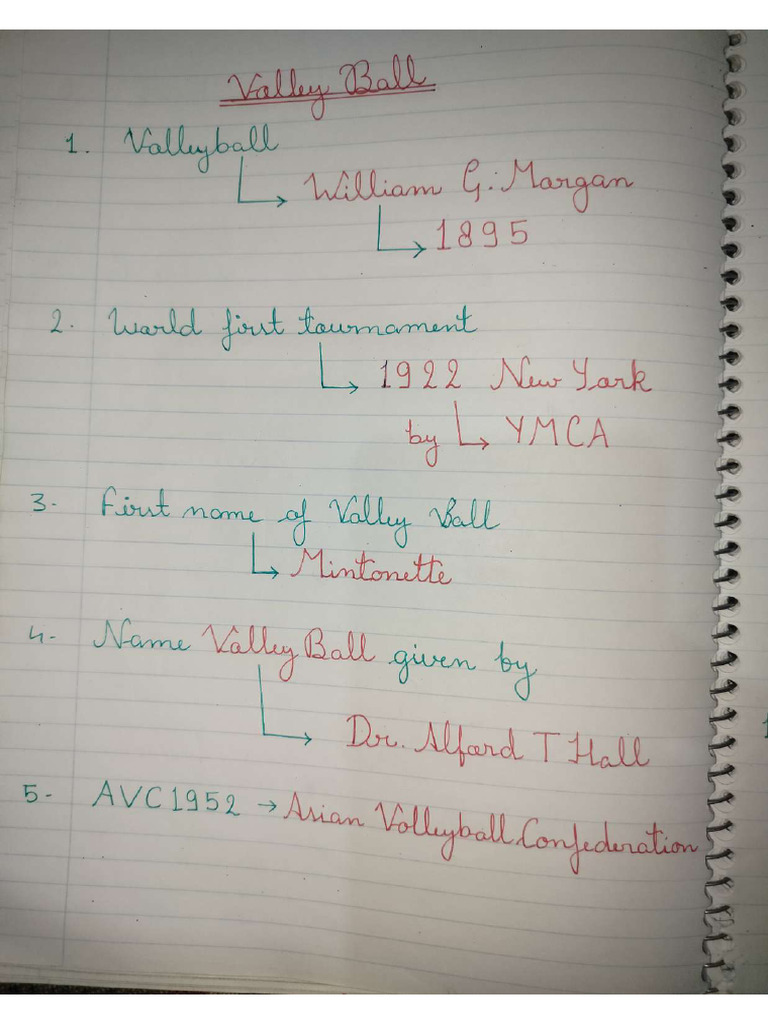 Valley Ball
1. Valleyball
William G. Margan
1895
2. World first tournament
1922 New York
by YMCA
3. First name of Valley Ball
Mintonette
4. Name Valley Ball given by
Dr. Alfard T Hall
5. AVC1952 → Asian Volleyball Confederation